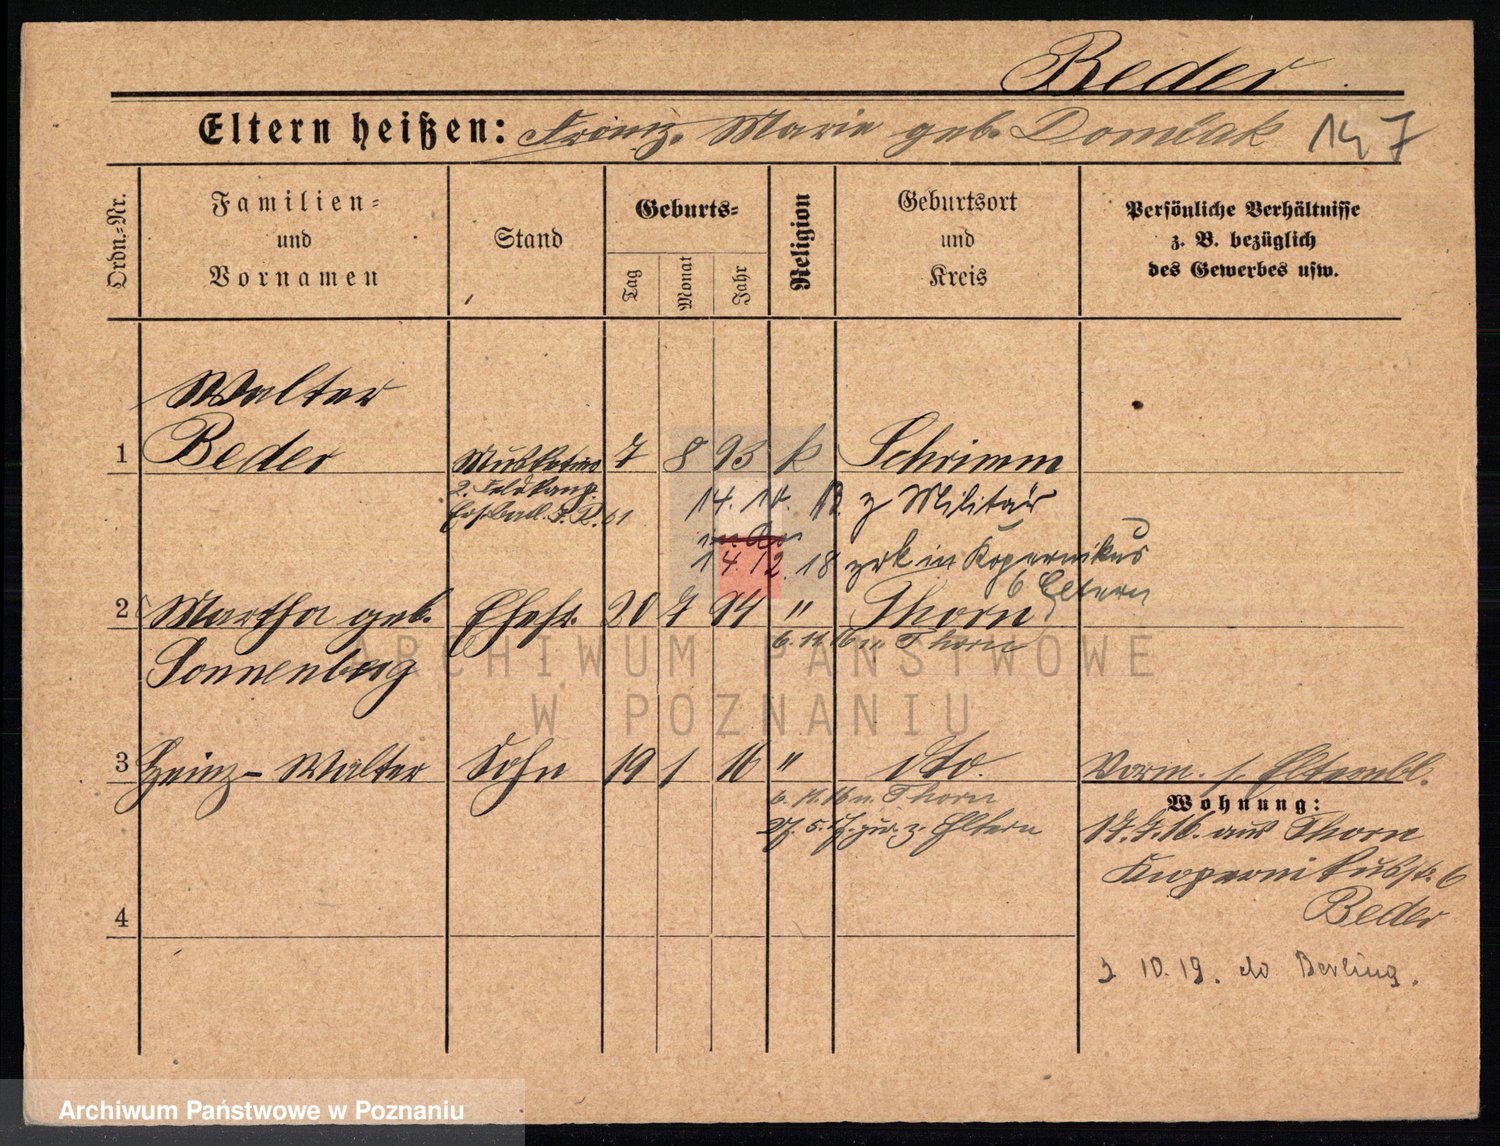 Beder
Eltern heißen: Franz. Marie geb. Domiak 147
Ordn.-Nr.
Familien-
und
Vornamen
Stand
Geburts-
Tag
Monat
Jahr
Religion
Geburtsort
und
Kreis
Persönliche Verhältnisse
z. B. bezüglich
des Gewerbes usw.
Walter
1 Beder Musketier 7 8 93 k Schrimm
2. Feldkomp.
Ers. Batl. I. R. 61
14. 10. z Militär
14. 12. 18 zrk in Kopernikus
6 Eltern
2 Martha geb. Ehefr. 20 7 94 " Thorn
Sonnenberg
6. 11. 16 n. Thorn
3 Heinz-Walter Sohn 19 1 16 " dto. Vorm. s. Elternbl.
Wohnung:
6. 11. 16 n. Thorn
27. 5. 17. zur. z. Eltern
17. 7. 16. aus Thorn
Kopernikusstr. 6
4
Beder
10. 19. do Berlina.
ARCHIWUM PAŃSTWOWE
W POZNANIU
Archiwum Państwowe w Poznaniu